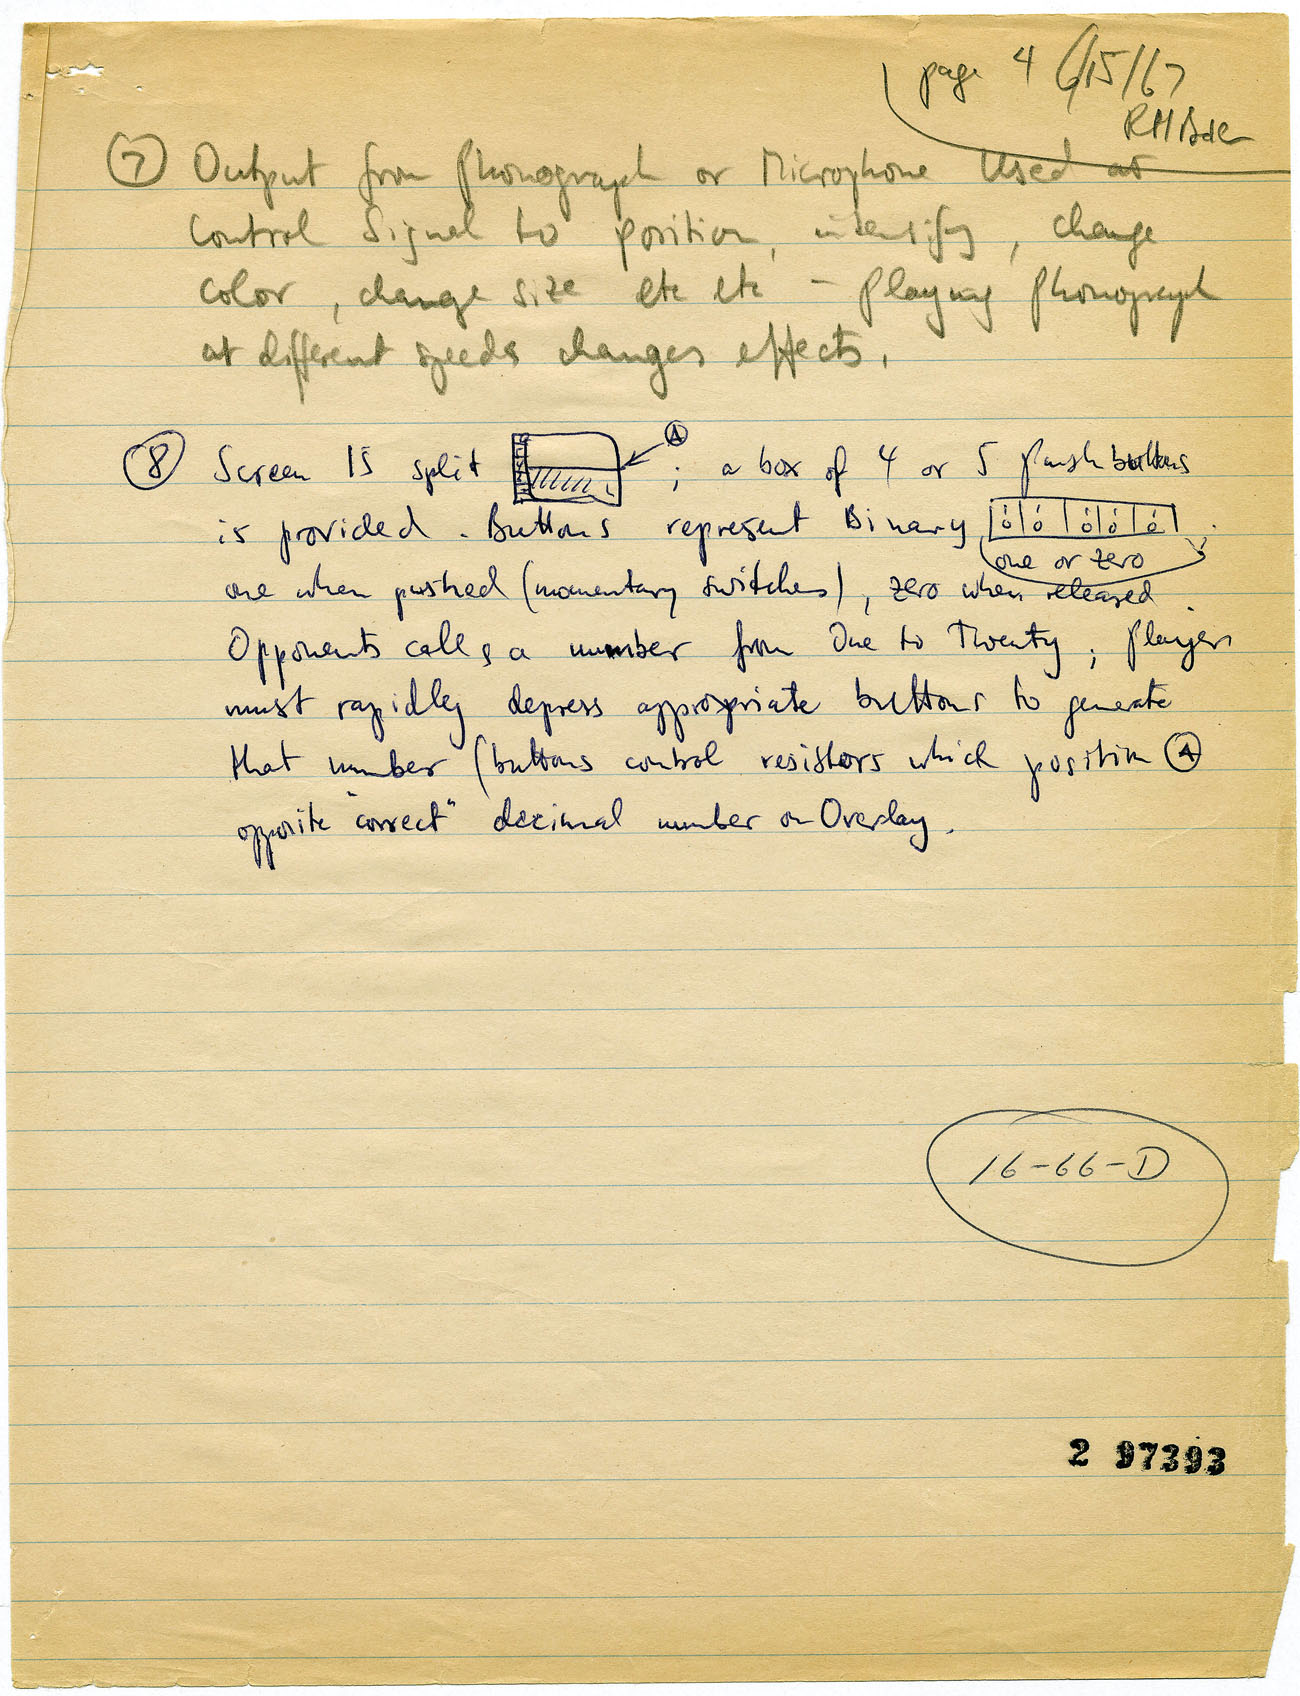 page 4 6/15/67
RHBaer
⑦ Output from Phonograph or Microphone Used as
Control Signal to position, intensify, change
color, change size etc etc – Playing Phonograph
at different speeds changes effects.
⑧ Screen is split Ⓐ ; a box of 4 or 5 push buttons
is provided. Buttons represent Binary
one or zero
one when pushed (momentary switches), zero when released.
Opponents calls a number from One to Twenty; players
must rapidly depress appropriate buttons to generate
that number (buttons control resistors which position Ⓐ
opposite "correct" decimal number on Overlay.
16-66-D
2 97393